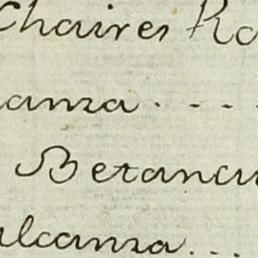 Chaires Ra
anza . - - -
Betancu
alcanza . . .